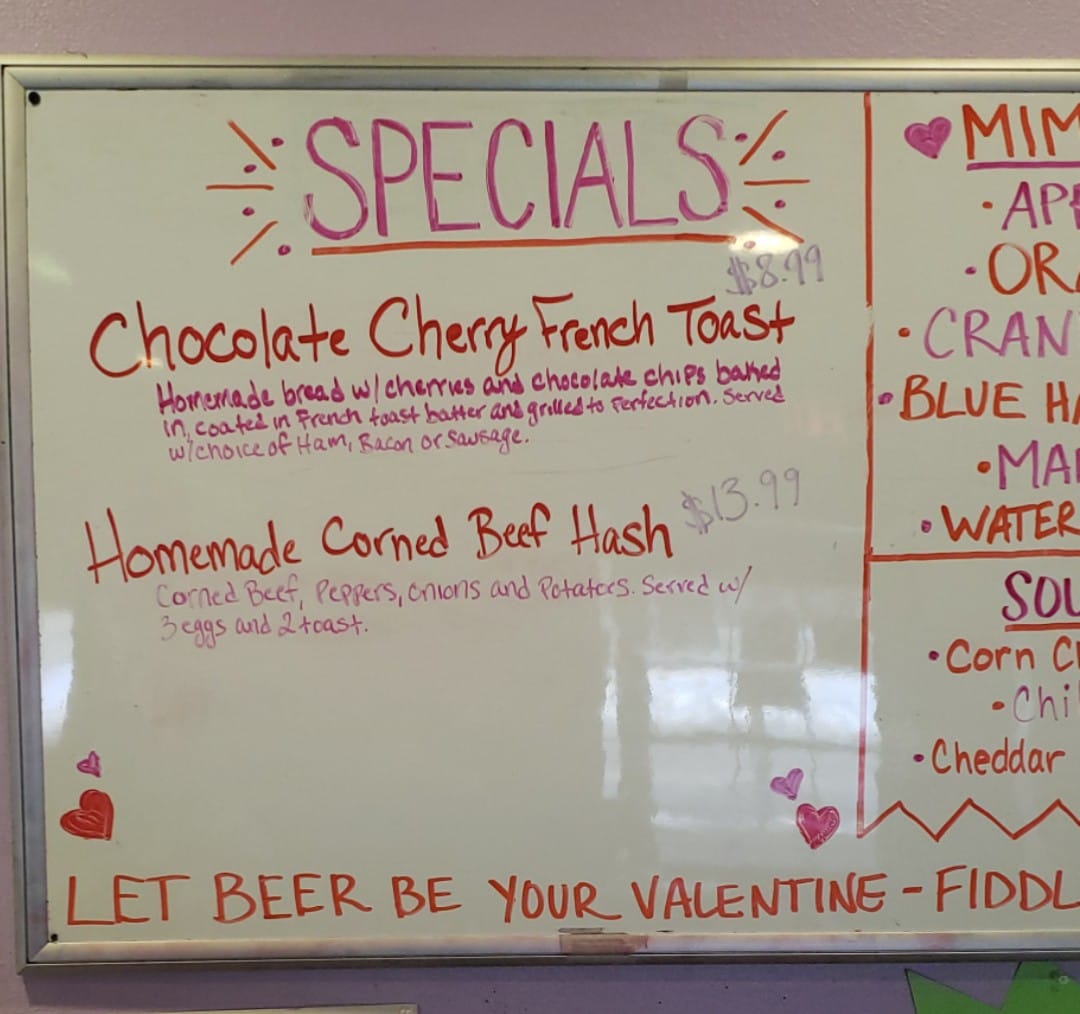 SPECIALS
$8.99
Chocolate Cherry French Toast
Homemade bread w/cherries and chocolate chips baked
in, coated in French toast batter and grilled to Perfection. Served
w/choice of Ham, Bacon or Sausage.
$13.99
Homemade Corned Beef Hash
Corned Beef, Peppers, Onions and Potatoes. Served w/
3 eggs and 2 toast.
MIM
• APP
• ORA
• CRAN
• BLUE HA
• MA
• WATER
SOU
• Corn C
• Chi
• Cheddar
LET BEER BE YOUR VALENTINE - FIDDL